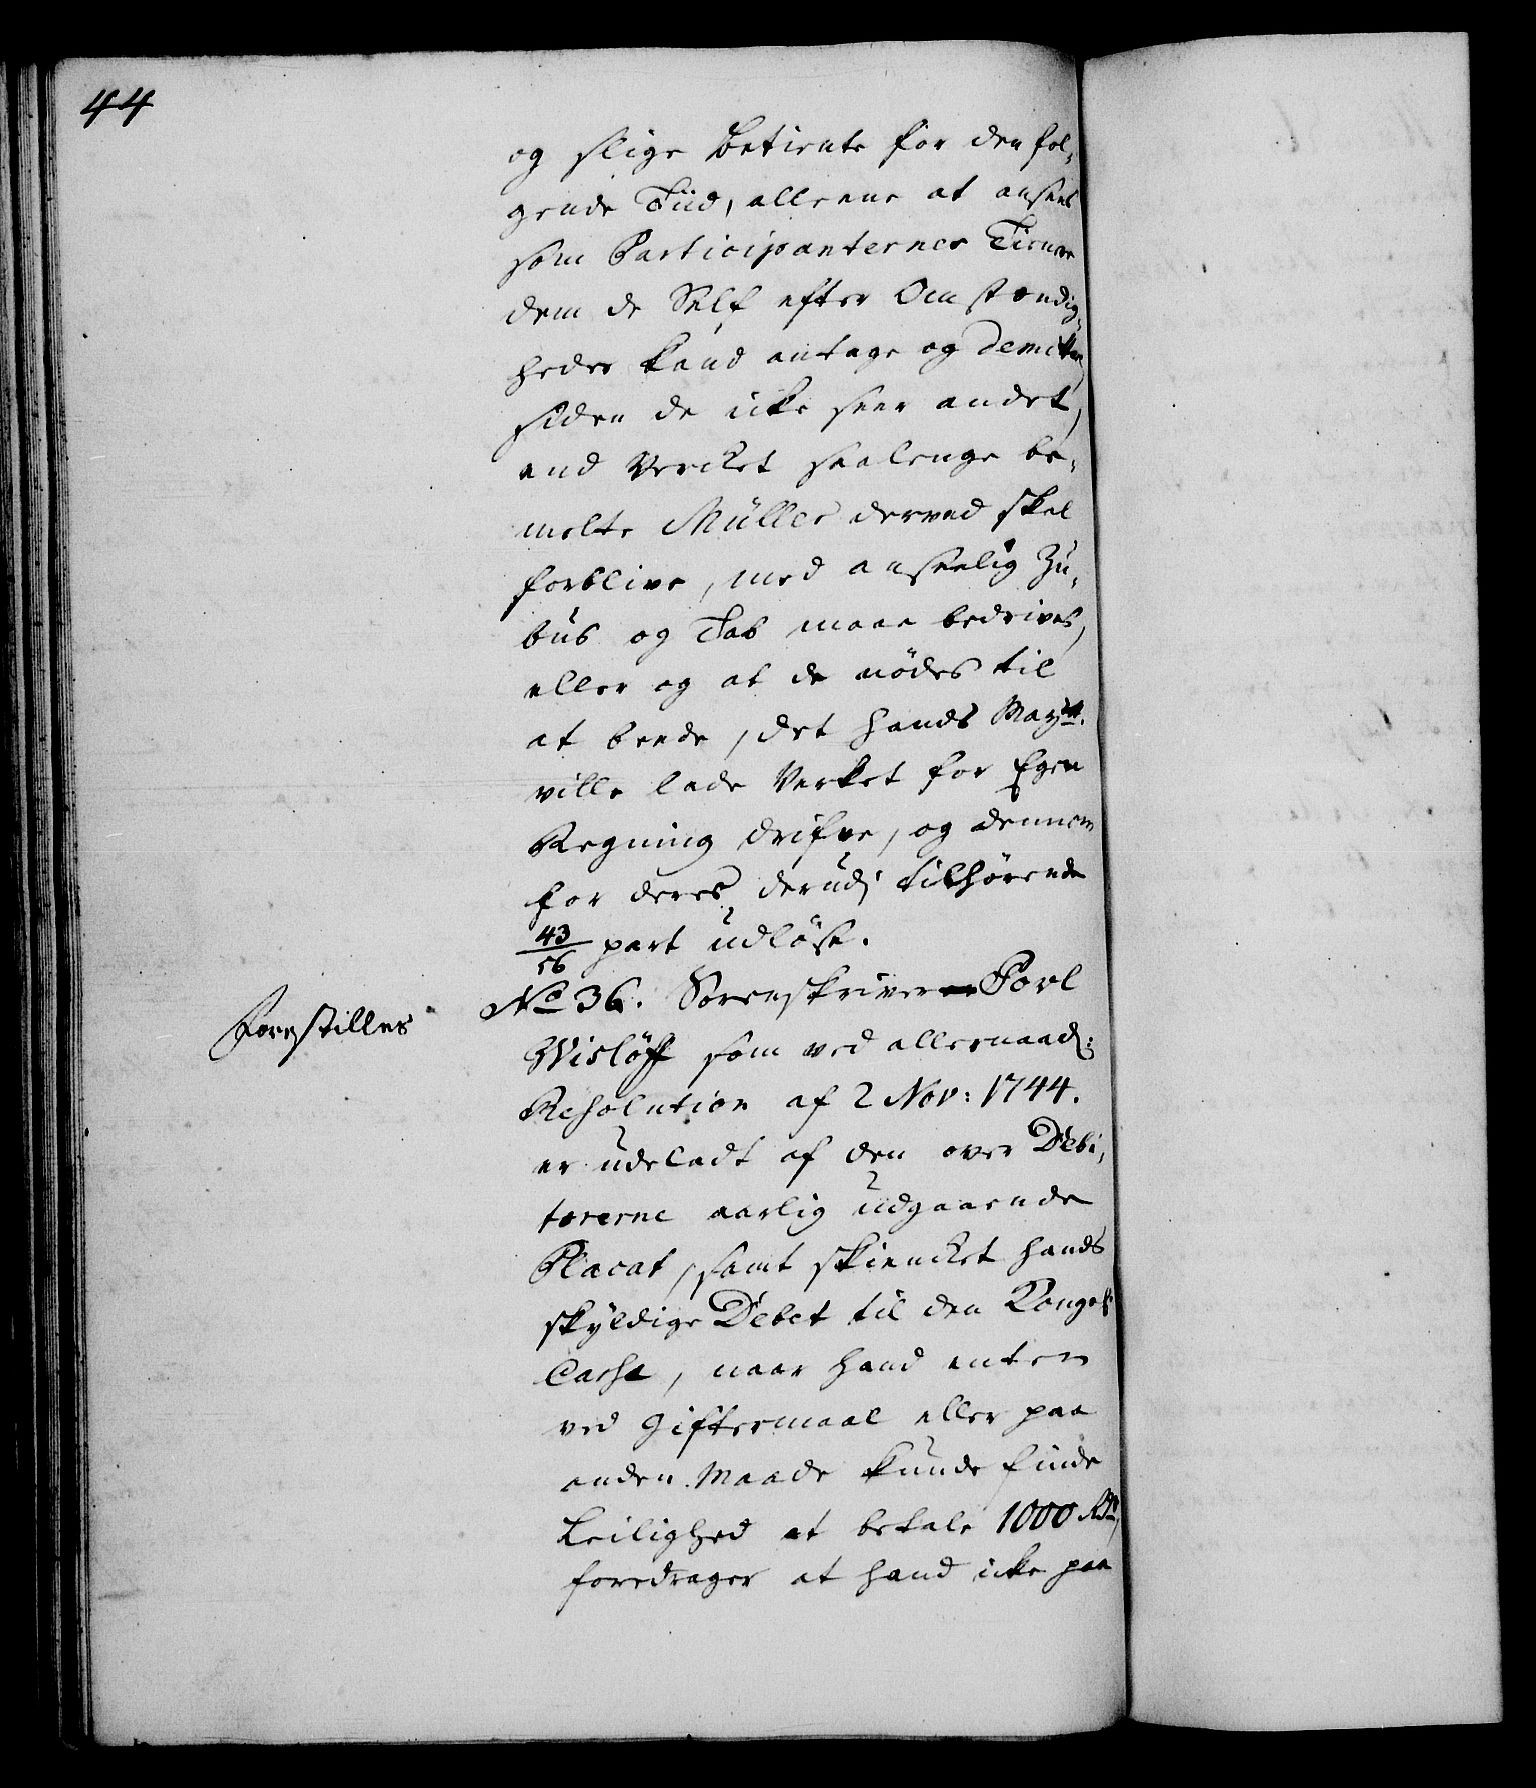 44
og slige Betiente for den føl,
gende Tiid, alleene at ansees
som Participanternes Tienere
dem de Self efter Omstændig,
heder kand antage og demittere,
siden de icke seer andet,
end Vercket saalenge be,
melte Müller derved skal
forblive, med anseelig Zu,
bus og Tab maae bedrives,
eller og at de nødes til
at beede, det hands Mayst.
ville lade Verket for Egen
Regning drifve, og dennem
for deres derudj tilhørende
43/56 part udløse.
Forestilles
No 36. Sorenskriver Povl
Wisløff som ved allernaad:
Resolution af 2 Nov: 1744.
er udeladt af den over Debi,
torerne aarlig udgaaende
Placat, samt skiencket hands
skyldige Debet til den Kongel:
Cassa, naar hand enten
ved Giftermaal eller paa
anden Maade kunde finde
Leilighed at betale 1000 Rdr,
foredrager at hand icke paa